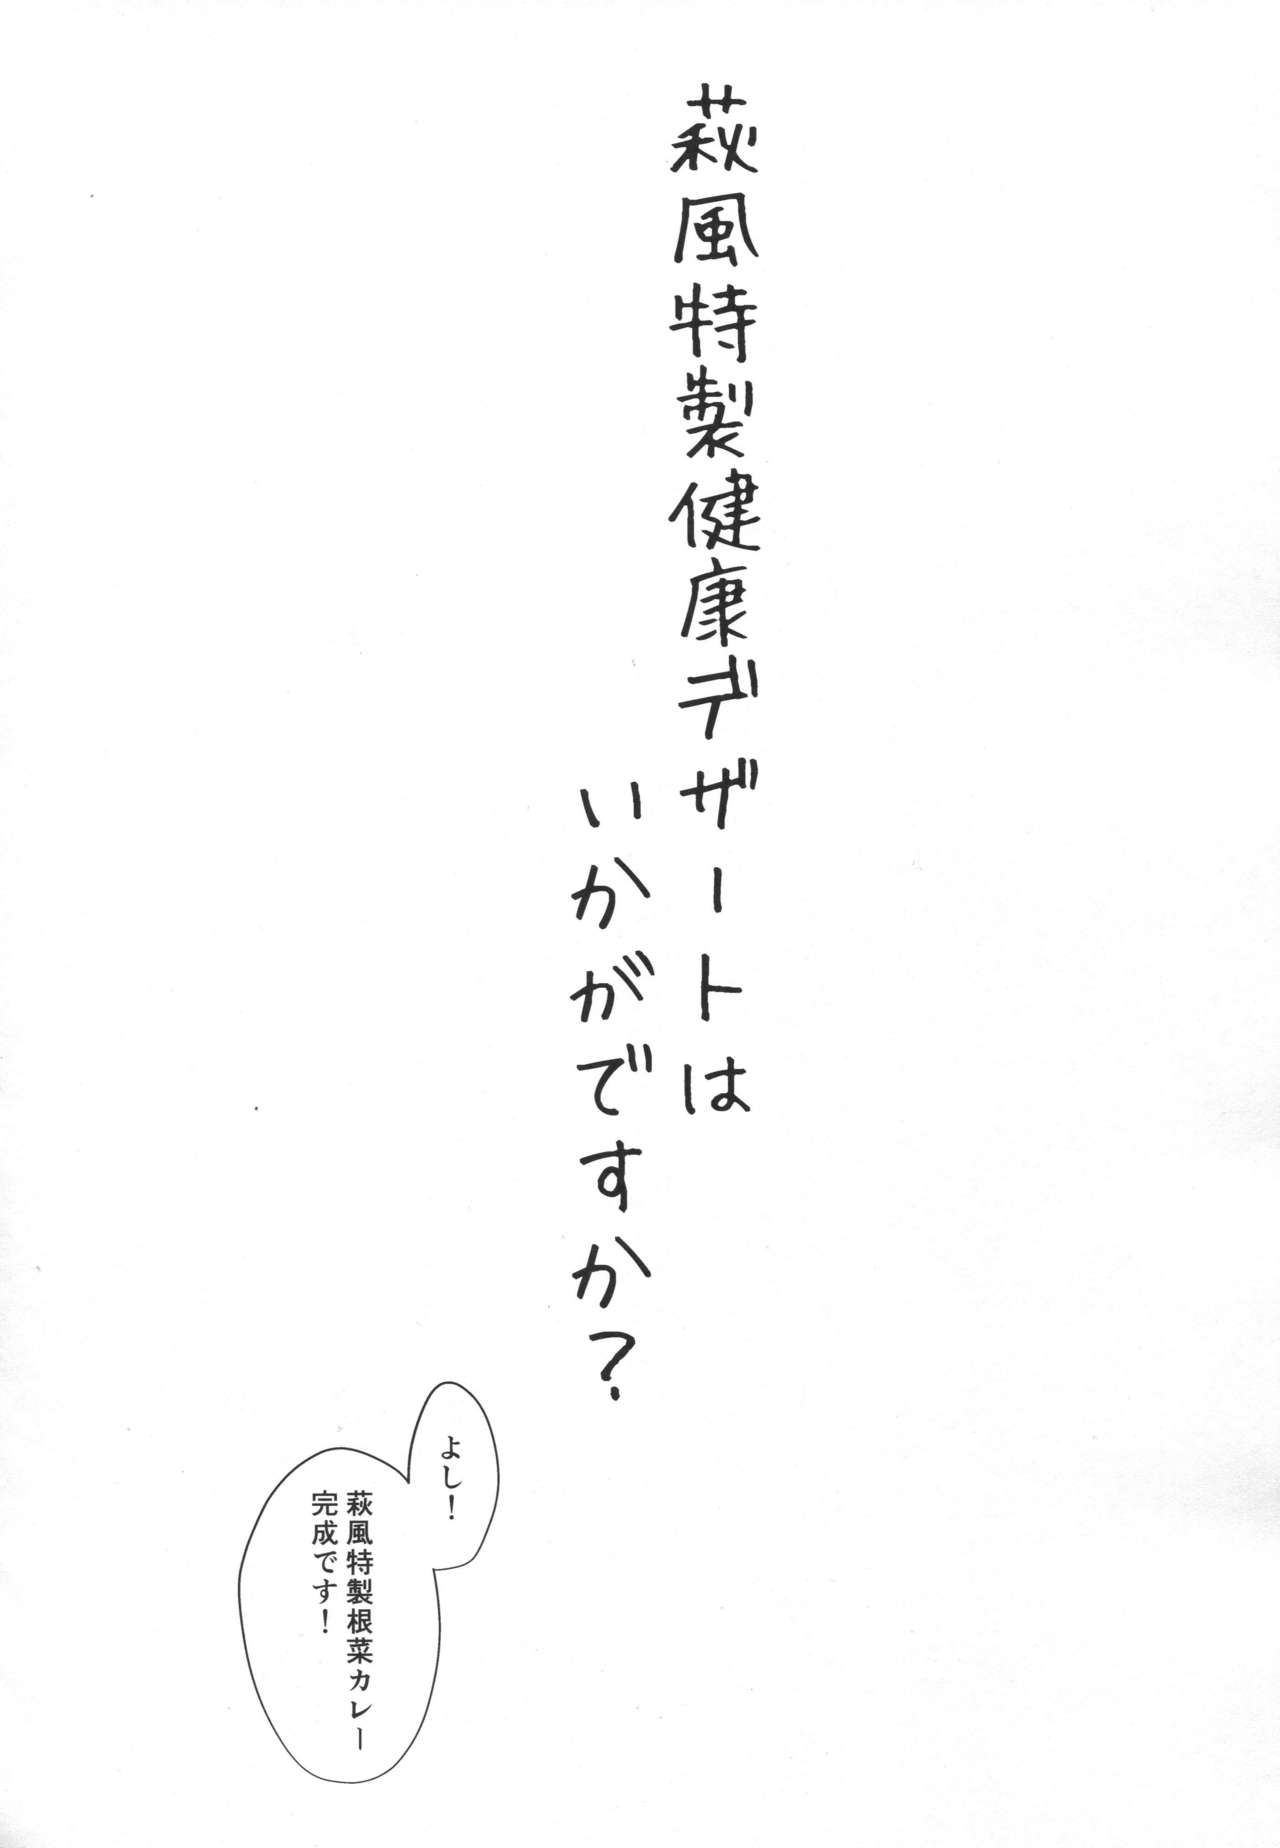 萩風特製健康デザートは
いかがですか?
よし!
萩風特製根菜カレー
完成です!